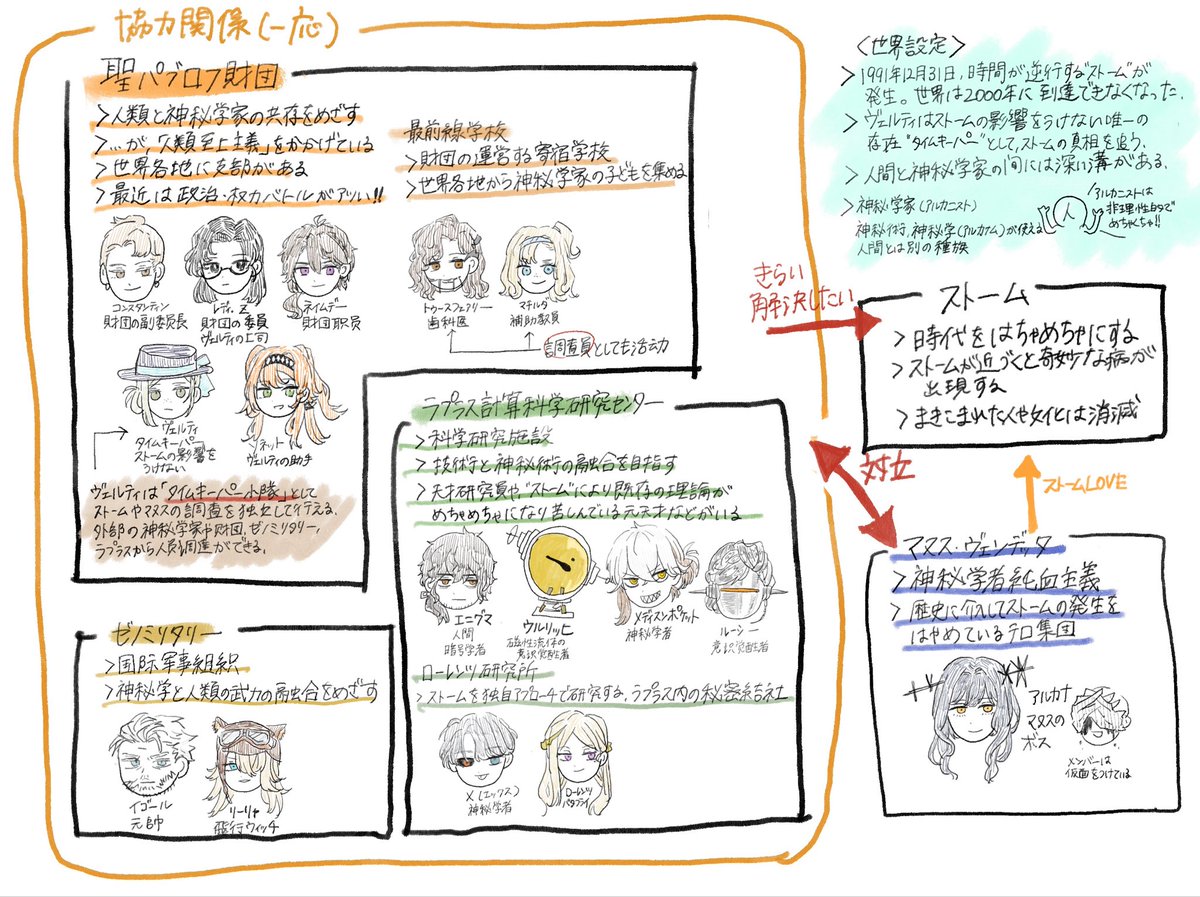 協力関係(一応)
聖パブロフ財団
>人類と神秘学家の共存をめざす
>…が、「人類至上主義」をかかげている
>世界各地に支部がある
>最近は政治・権力バトルがアツい!!
コンスタンティン
財団の副委員長
レディ・Z
財団の委員
ヴェルティの上司
ネイムデー
財団職員
ヴェルティ
タイムキーパー
ストームの影響を
うけない
ソネット
ヴェルティの助手
ヴェルティは「タイムキーパー小隊」として
ストームやマヌスの調査を独立して行える。
外部の神秘学家や財団、ゼノミリタリー、
ラプラスから人員調達ができる。
最前線学校
>財団の運営する寄宿学校
>世界各地から神秘学家の子どもを集める
トゥースフェアリー
歯科医
マチルダ
補助教員
調査員としても活動
ラプラス計算科学研究センター
>科学研究施設
>技術と神秘術の融合を目指す
>天才研究員や、"ストーム"により既存の理論が
めちゃめちゃになり苦しんでいる元天才などがいる
エニグマ
人間
暗号学者
ウルリッヒ
磁性流体の
意識覚醒者
メディスンポケット
神秘学者
ルーシー
意識覚醒者
ローレンツ研究所
>ストームを独自アプローチで研究する、ラプラス内の秘密結社
X(エックス)
神秘学者
ローレンツ
バタフライ
ゼノミリタリー
>国際軍事組織
>神秘学と人類の武力の融合をめざす
イゴール
元帥
リーリャ
飛行ウィッチ
<世界設定>
>1991年12月31日、時間が逆行する"ストーム"が
発生。世界は2000年に到達できなくなった.
>ヴェルティはストームの影響をうけない唯一の
存在"タイムキーパー"として、ストームの真相を追う、
>人間と神秘学家の間には深い溝がある.
>神秘学家(アルカニスト)
神秘術、神秘学(アルカナム)が使える
人間とは別の種族
人
アルカニストは
非理性的で
めちゃくちゃ!!
きらい
解決したい
ストーム
>時代をはちゃめちゃにする
>ストームが近づくと奇妙な病が
出現する
>まきこまれた人や文化は消滅
対立
ストームLOVE
マヌス・ヴェンデッタ
>神秘学者純血主義
>歴史に介入してストームの発生を
はやめているテロ集団
アルカナ
マヌスの
ボス
メンバーは
仮面をつけている